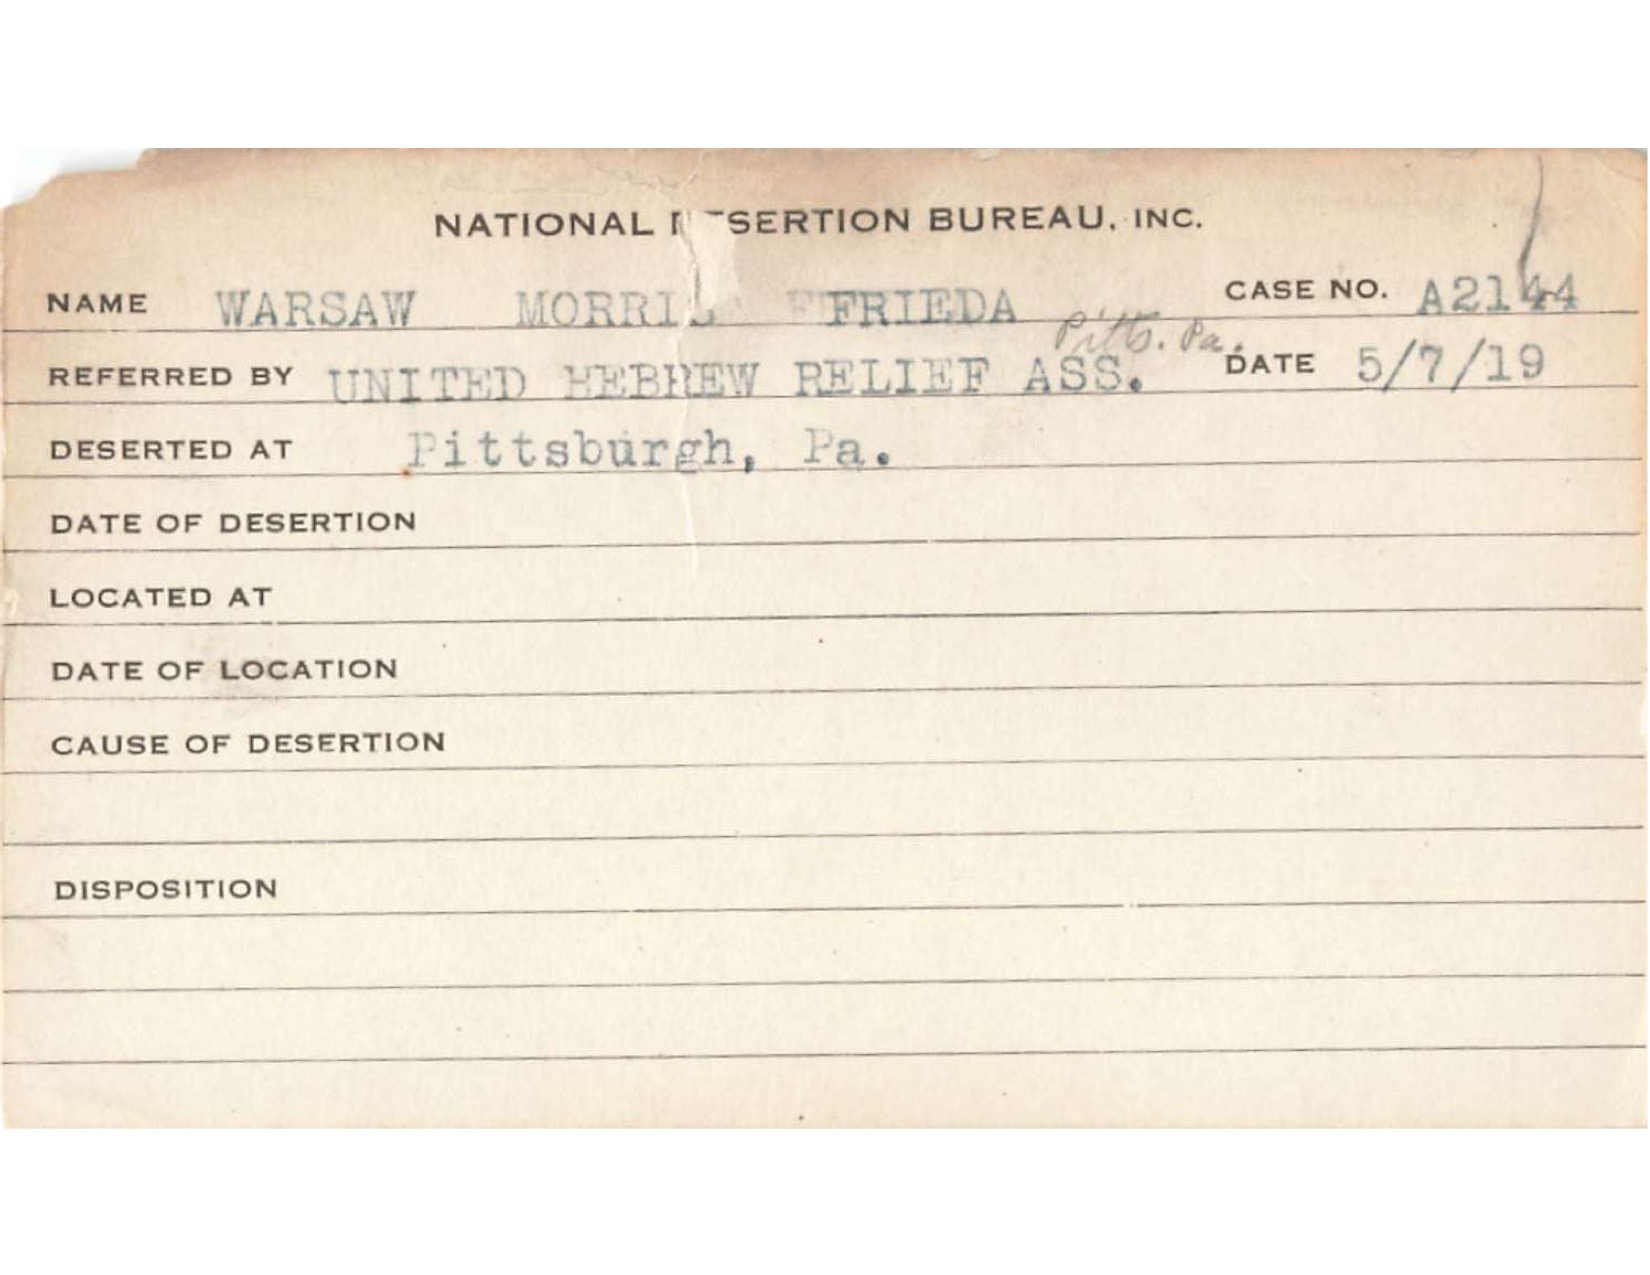 NATIONAL DESERTION BUREAU, INC.
NAME WARSAW MORRIS FRIEDA CASE NO. A2144
REFERRED BY UNITED HEBREW RELIEF ASS. Pitts. Pa. DATE 5/7/19
DESERTED AT Pittsburgh, Pa.
DATE OF DESERTION
LOCATED AT
DATE OF LOCATION
CAUSE OF DESERTION
DISPOSITION